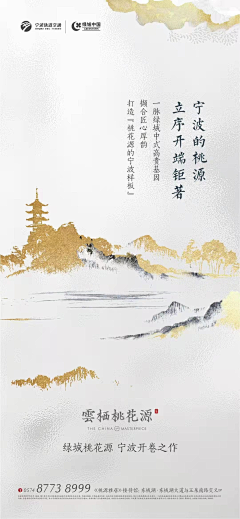 宁波轨道交通
绿城中国
宁波的桃源
立序开端钜著
一脉绿城中式高贵基因
撷合匠心厚韵
打造『桃花源的宁波样板』
雲栖桃花源
THE CHINA MASTERPIECE
绿城桃花源 宁波开卷之作
0574 8773 8999